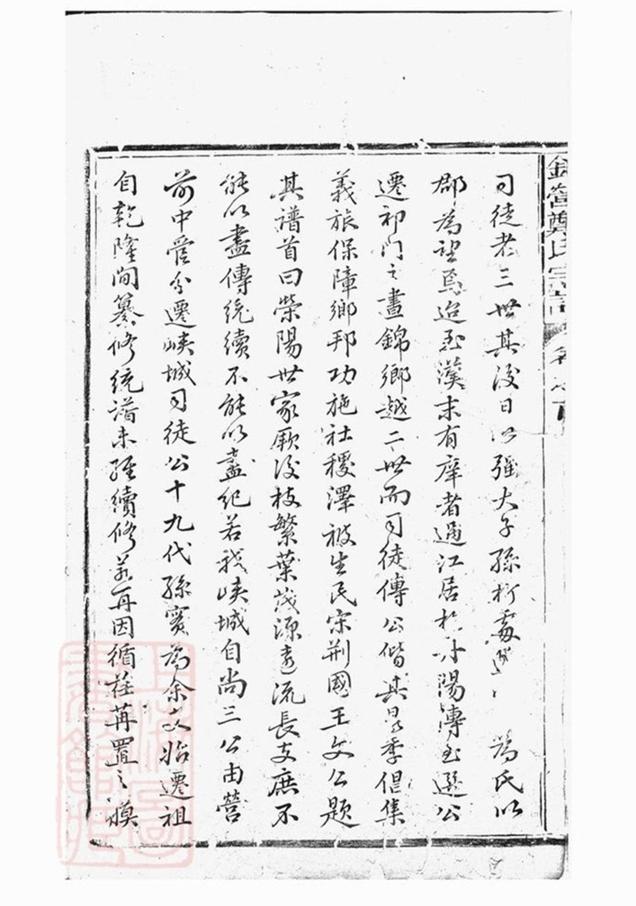 司徒者三世其後日以强大子孫 為氏以
郡為望焉迨至漢末有庠者過江居於丹陽傳至選公
遷祁門之晝錦鄉越二世而司徒傳公偕其昂季倡集
義旅保障鄉邦功施社稷澤被生民宋荆國王文公題
其譜首曰榮陽世家厥後枝繁葉茂源遠流長支庶不
能以盡傳統續不能以盡紀若我峽城自尚三公由營
前中營分遷峽城司徒公十九代孫實為余支始遷祖
自乾隆間纂修統譜未經續修若再因循荏苒置之漠
鄭氏宗譜